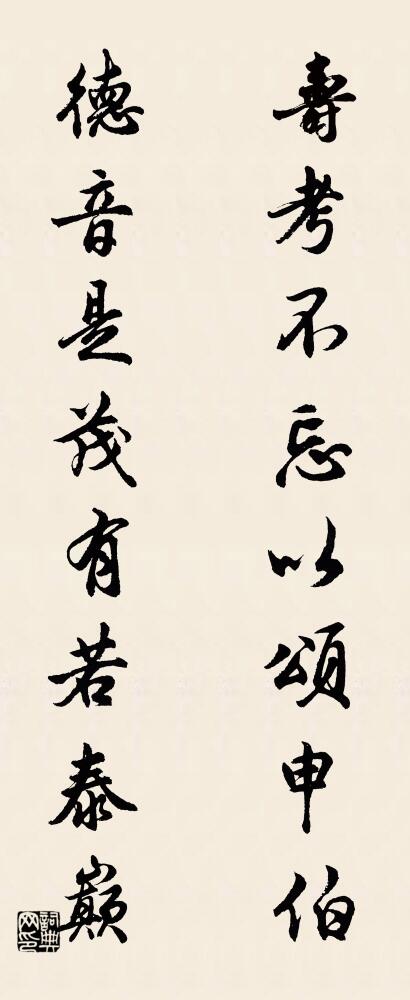 壽考不忘以頌申伯
德音是茂有若泰巔
詞典网印